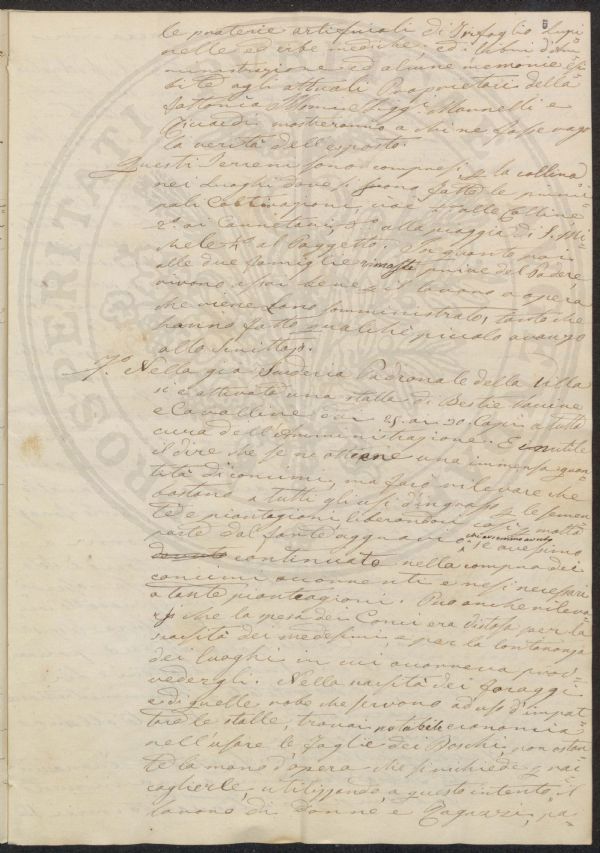 le praterie artificiali di Trifoglio Lupi=
nelle ed erbe mediche, ed i libri d'Am=
ministrazione ed alcune memorie esi=
bite agli attuali Proprietari della
fattoria Sigg.ri Mannelli e
Ricardi mostreranno a chi ne fosse vago
la verità dell'esposto.
Questi Terreni sono compresi la collina
nei Luoghi dove si sono fatte le princi=
pali Coltivazioni, cioè 1° alle Colline
2° ai Canneti, 3° alla piaggia di S. Mi=
chele 4° al Poggetto. In quanto poi
alle due famiglie rimaste prive del Podere,
vivono assai bene il lavoro a opera
che viene loro somministrato, tanto che
hanno fatto qualche piccolo avanzo
allo Scrittojo.
7° Nella già Scuderia Padronale della Villa
si è attivata una stalla di Bestie Vaccine
e Cavalline dai 25. ai 30. Capi a tutta
cura dell'Amministrazione. È inutile
il dire che se ne ottiene una immensa quan=
tità di concimi, ma farò rilevare che
bastano a tutti gli usi d'ingrasso le semen=
te e piantagioni liberandoci così molta
parte dal forte aggravio che avremmo avuto se avessimo
dovuto continuato nella compra dei
concimi occorrenti e necessari
a tante piantagioni. Può anche rileva=
rsi che la spesa dei Conci era vistosa per la
scarsità dei medesimi, e per la lontananza
dei luoghi in cui occorreva prov=
vedergli. Nella scarsità dei foraggi
e di quelle robe che servono ad uso d'impat=
tare le stalle, trovai notabile economia
nell'usare le foglie dei Boschi, non ostan=
te la mano d'opera che si richiede rac=
coglierle, utilizzando a questo intento il
lavoro di donne, e Ragazzi, pa=